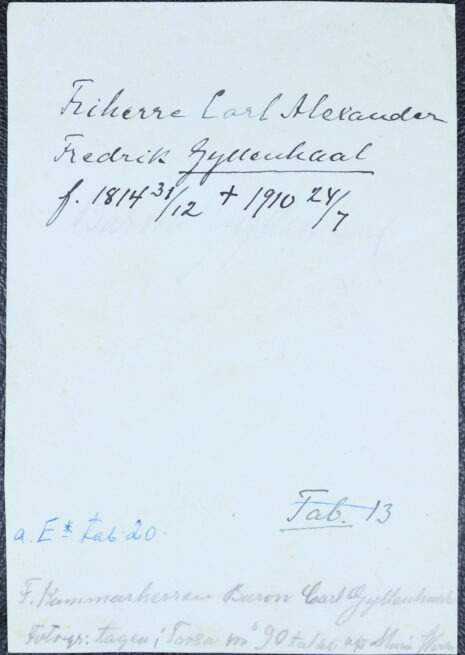 Friherre Carl Alexander
Fredrik Gyllenhaal
f. 1814 31/12 + 1910 24/7
Tab. 13
a. E* tab 20.
F. Kammarherren Baron Carl Gyllenhaal
Fotogr: tagen i Trosa 90 talet af